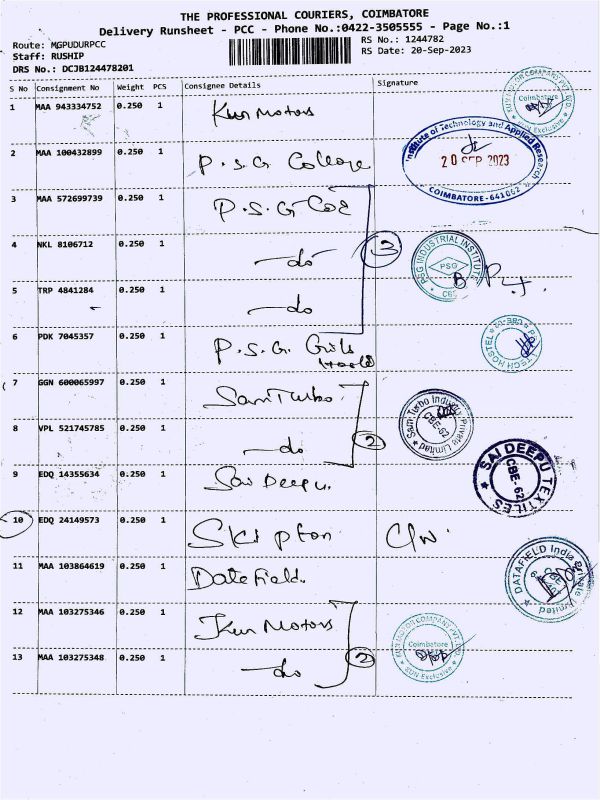 THE PROFESSIONAL COURIERS, COIMBATORE
Delivery Runsheet - PCC - Phone No.:0422-3505555 - Page No.:1
Route: MGPUDURPCC
RS No.: 1244782
Staff: RUSHIP
RS Date: 20-Sep-2023
DRS No.: DCJB124478201
S No Consignment No Weight PCS Consignee Details Signature
1 MAA 943334752 0.250 1 Kun Motors
Coimbatore
SUN Exclusive
2 MAA 100432899 0.250 1 P.S.G College
Institute of Technology and Applied Research
20 SEP 2023
COIMBATORE-641062
3 MAA 572699739 0.250 1 P.S.G CoE
4 NKL 8106712 0.250 1 do 3
PSG INDUSTRIAL INSTITUTE
PSG
5 TRP 4841284 0.250 1 do
6 PDK 7045357 0.250 1 P.S.G. Girls
7 GGN 600065997 0.250 1 Sam Turbo
Sam Turbo Industry Private Limited
CBE-62
8 VPL 521745785 1 do 2
0.250
9 EDQ 14355634 0.250 1 Sai Deepu
SAI DEEPU TEXTILES
CBE-62
10 EDQ 24149573 0.250 1 Skipton
11 MAA 103864619 0.250 1 Datefield
DATAFIELD India Private Limited
12 MAA 103275346 0.250 1 Kun Motors
KUN MOTOR COMPANY PVT. LTD.
Coimbatore
SUN Exclusive
13 MAA 103275348 0.250 1 do 2